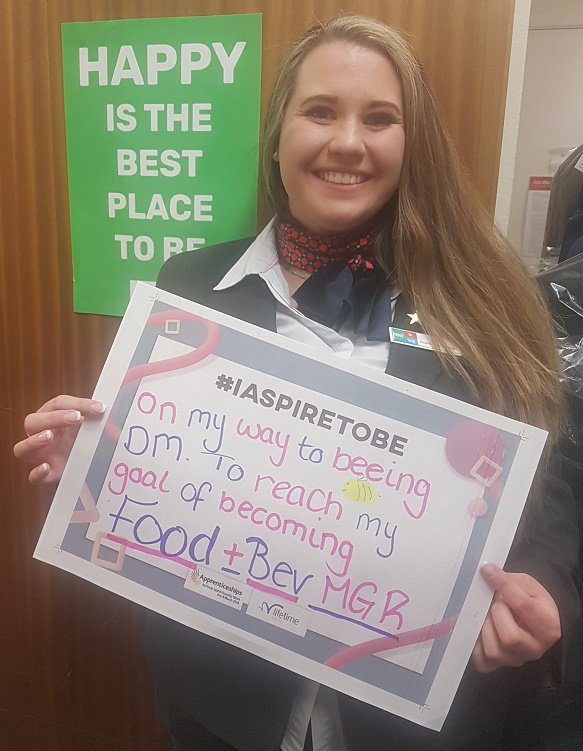 HAPPY
IS THE
BEST
PLACE
TO BE
#IASPIRETOBE
On my way to beeing
DM. To reach my
goal of becoming
Food + Bev MGR
Apprenticeships
lifetime